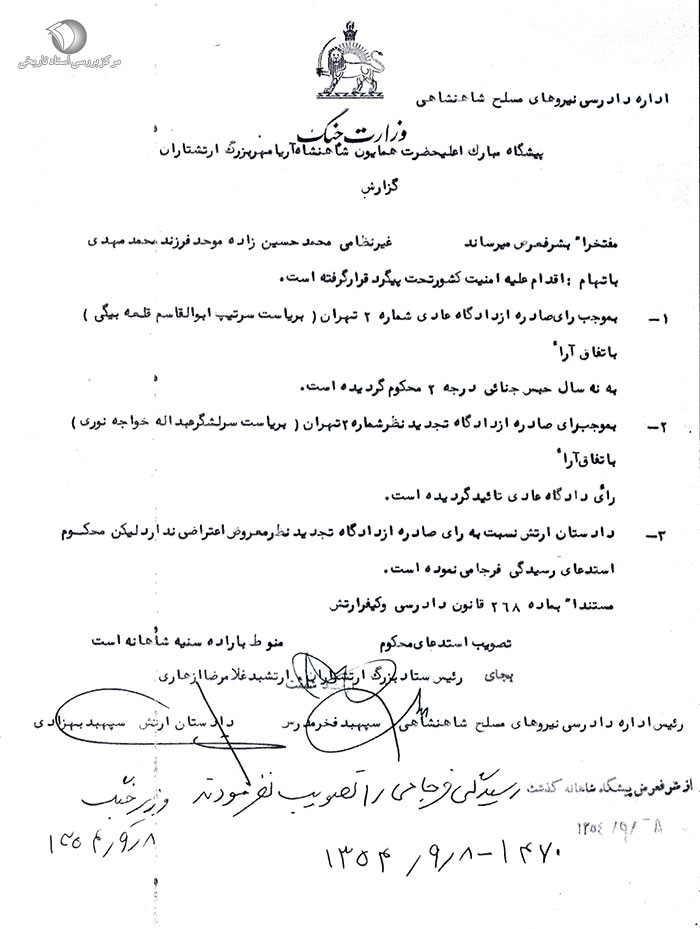 مرکز بررسی اسناد تاریخی
اداره دادرسی نیروهای مسلح شاهنشاهی
وزارت جنگ
پیشگاه مبارک اعلیحضرت همایون شاهنشاه آریامهر بزرگ ارتشتاران
گزارش
مفتخراً بشرفعرض میرساند غیرنظامی محمد حسین زاده موحد فرزند محمد مهدی
باتهام : اقدام علیه امنیت کشور تحت پیگرد قرار گرفته است.
۱- بموجب رای صادره از دادگاه عادی شماره ۲ تهران ( بریاست سرتیپ ابوالقاسم قلعه بیگی )
با تفاق آراء
به نه سال حبس جنائی درجه ۲ محکوم گردیده است.
۲- بموجب رای صادره از دادگاه تجدید نظر شماره ۲ تهران ( بریاست سرلشگر عبداله خواجه نوری )
با تفاق آراء
رأی دادگاه عادی تائید گردیده است.
۳- دادستان ارتش نسبت به رای صادره از دادگاه تجدید نظر معروض اعتراضی ندارد لیکن محکوم
استدعای رسیدگی فرجامی نموده است.
مستنداً بماده ۲۶۸ قانون دادرسی وکیفر ارتش
تصویب استدعای محکوم منوط باراده سنیه شاهانه است
بجای رئیس ستاد بزرگ ارتشتاران. ارتشبد غلامرضا ازهاری
رئیس اداره دادرسی نیروهای مسلح شاهنشاهی سپهبد فخر مدرس دادستان ارتش سپهبد بهزادی
از شرفعرض پیشگاه شاهانه گذشت رسیدگی فرجامی را تصویب نفرمودند وزیر جنگ
۱۳۵۴/۹/۸
۱۳۵۴/۹/۸
۱۳۵۴/۹/۸-۱۴۷۰